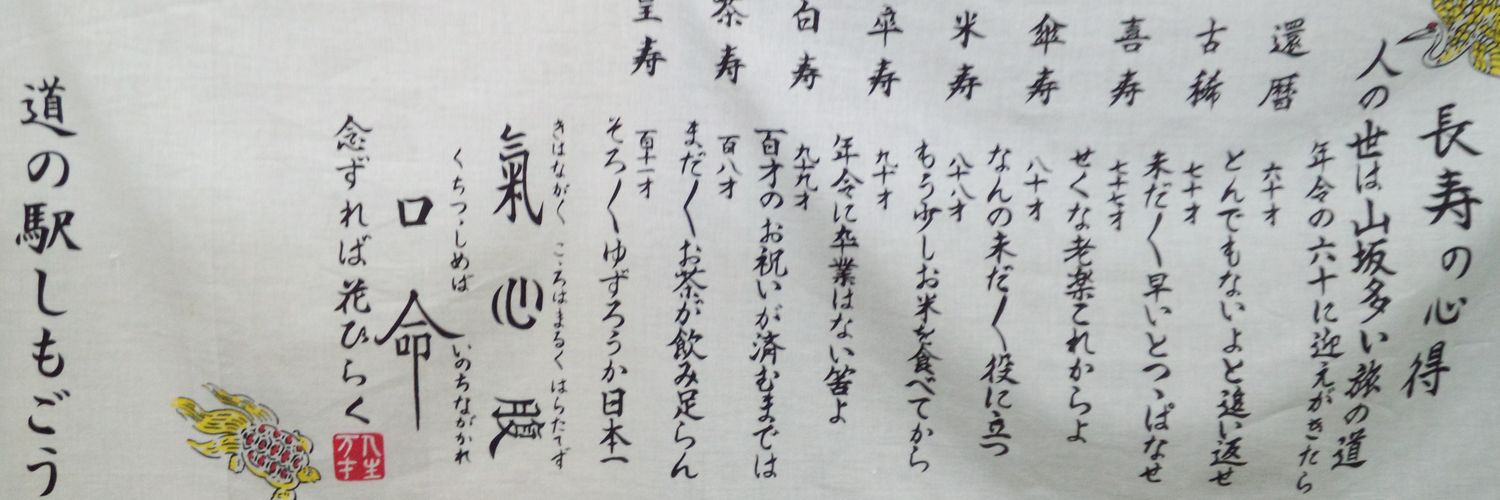 長寿の心得
人の世は山坂多い旅の道
年令の六十に迎えがきたら
還暦
六十才
とんでもないよと追い返せ
古稀
七十才
未だ〱早いとつゝぱなせ
喜寿
七十七才
せくな老楽これからよ
傘寿
八十才
なんの未だ〱役に立つ
米寿
八十八才
もう少しお米を食べてから
卒寿
九十才
年令に卒業はない筈よ
白寿
九十九才
百才のお祝いが済むまでは
茶寿
百八才
まだ〱お茶が飲み足らん
皇寿
百十一才
そろ〱ゆずろうか日本一
きはながく こゝろはまるく はらたてず
氣 心 腹
くちつゝしめば いのちながかれ
口 命
念ずれば花ひらく
人生
万才
道の駅しもごう